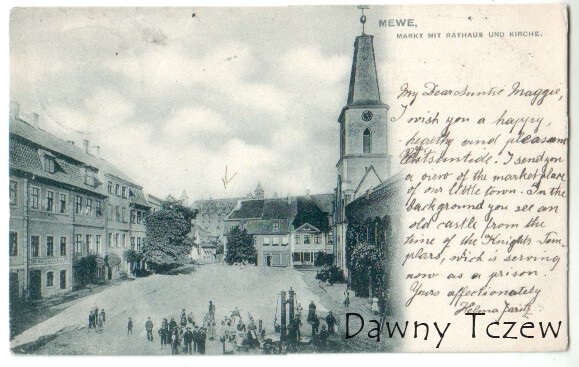 MEWE,
MARKT MIT RATHAUS UND KIRCHE.
My Dear Auntie Maggie,
I wish you a happy,
healthy and pleasant
Whitsuntide. I send you
a view of the marketplace
of our little town. In the
background you see an
old castle from the
time of the Knights Tem-
plars, wich is serving
now as a prison.
Yours affectionately
Helma
Dawny Tczew